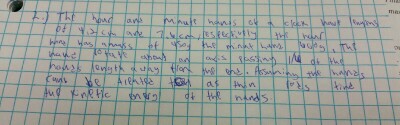 2.) The hour and minute hands of a clock have lengths
of 4.2 cm and 7. cm, respectively the hour
hand has a mass of the minute hand The
have rotate about an axis passing 1/4 of the
hands length away from the end. Assuming the hands
can be treated as thin rods find
the kinetic energy of the hands